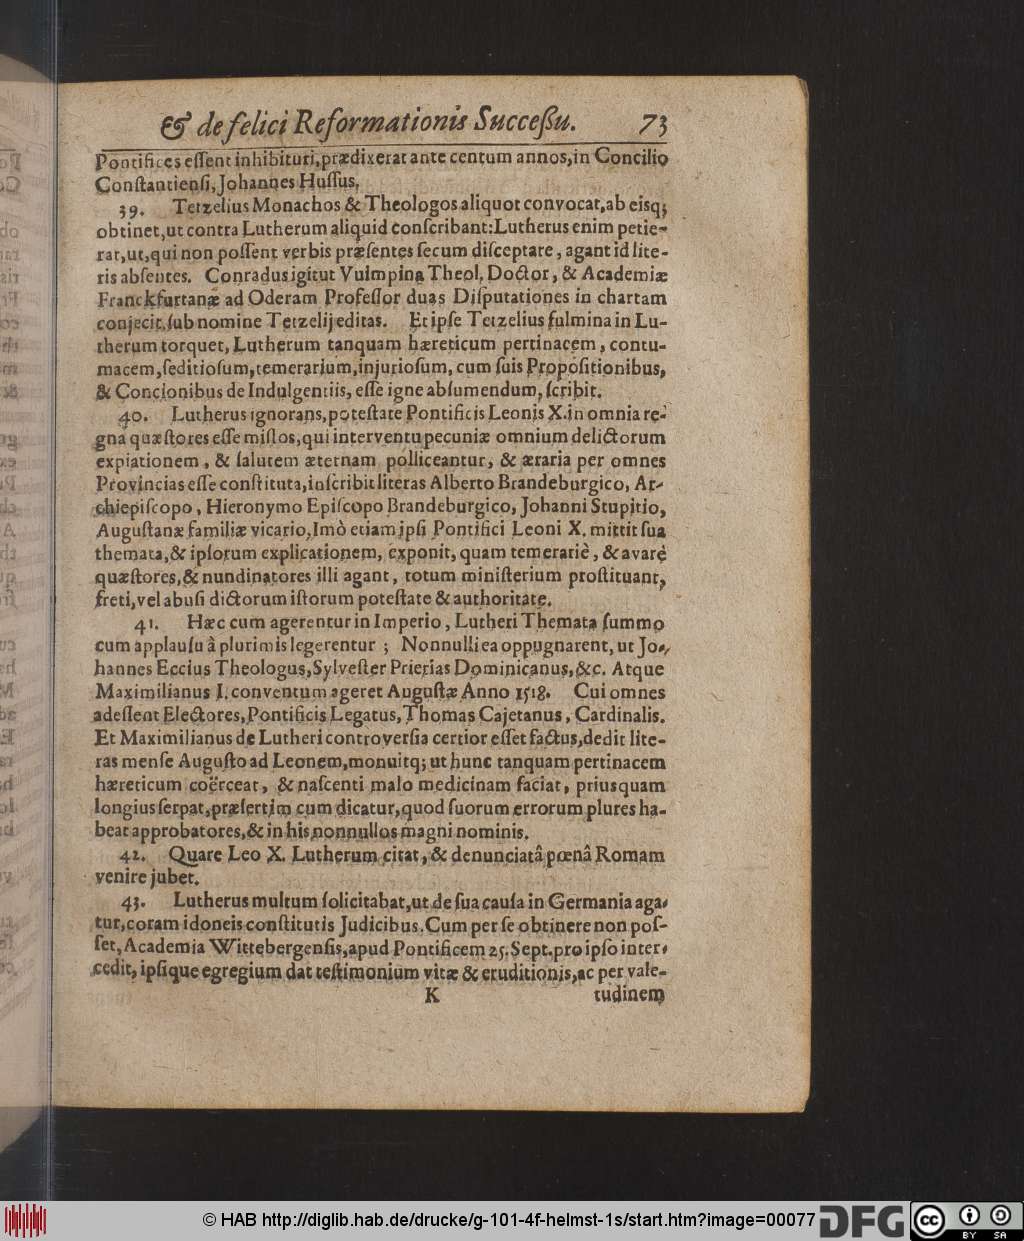 & de felici Reformationis Succeßu. 73
Pontifices eſſent inhibituri, prædixerat ante centum annos, in Concilio
Conſtantienſi, Johannes Huſſus.
39. Tetzelius Monachos & Theologos aliquot convocat, ab eisq;
obtinet, ut contra Lutherum aliquid conſcribant: Lutherus enim petie-
rat, ut, qui non poſſent verbis præſentes ſecum diſceptare, agant id lite-
ris abſentes. Conradus igitut Vuimpina Theol. Doctor, & Academiæ
Franckfurtanæ ad Oderam Profeſſor duas Diſputationes in chartam
conjecit, ſub nomine Tetzelij editas. Et ipſe Tetzelius fulmina in Lu-
therum torquet, Lutherum tanquam hæreticum pertinacem, contu-
macem, ſeditioſum, temerarium, injurioſum, cum ſuis Propoſitionibus,
& Concionibus de Indulgentiis, eſſe igne abſumendum, ſcribit.
40. Lutherus ignorans, poteſtate Pontificis Leonis X. in omnia re-
gna quæſtores eſſe miſſos, qui interventu pecuniæ omnium delictorum
expiationem, & ſalutem æternam polliceantur, & æraria per omnes
Provincias eſſe conſtituta, inſcribit literas Alberto Brandeburgico, Ar-
chiepiſcopo, Hieronymo Epiſcopo Brandeburgico, Johanni Stupitio,
Auguſtanæ familiæ vicario, Imò etiam ipſi Pontifici Leoni X. mittit ſua
themata, & ipſorum explicationem, exponit, quam temerariè, & avarè
quæſtores, & nundinatores illi agant, totum miniſterium proſtituant,
freti, vel abuſi dictorum iſtorum poteſtate & authoritate.
41. Hæc cum agerentur in Imperio, Lutheri Themata ſummo
cum applauſu â plurimis legerentur ; Nonnulli ea oppugnarent, ut Jo-
hannes Eccius Theologus, Sylveſter Prierias Dominicanus, &c. Atque
Maximilianus I. conventum ageret Auguſtæ Anno 1518. Cui omnes
adeſſent Electores, Pontificis Legatus, Thomas Cajetanus, Cardinalis.
Et Maximilianus de Lutheri controverſia certior eſſet factus, dedit lite-
ras menſe Auguſto ad Leonem, monuitq; ut hunc tanquam pertinacem
hæreticum coërceat, & naſcenti malo medicinam faciat, priusquam
longius ſerpat, præſertim cum dicatur, quod ſuorum errorum plures ha-
beat approbatores, & in his nonnullos magni nominis.
42. Quare Leo X. Lutherum citat, & denunciatâ pœnâ Romam
venire jubet.
43. Lutherus multum ſolicitabat, ut de ſua cauſa in Germania aga-
tur, coram idoneis conſtitutis Judicibus. Cum per ſe obtinere non poſ-
ſet, Academia Wittebergenſis, apud Pontificem 25. Sept. pro ipſo inter-
cedit, ipſique egregium dat teſtimonium vitæ & eruditionis, ac per vale-
K tudinem
© HAB http://diglib.hab.de/drucke/g-101-4f-helmst-1s/start.htm?image=00077 DFG cc BY SA